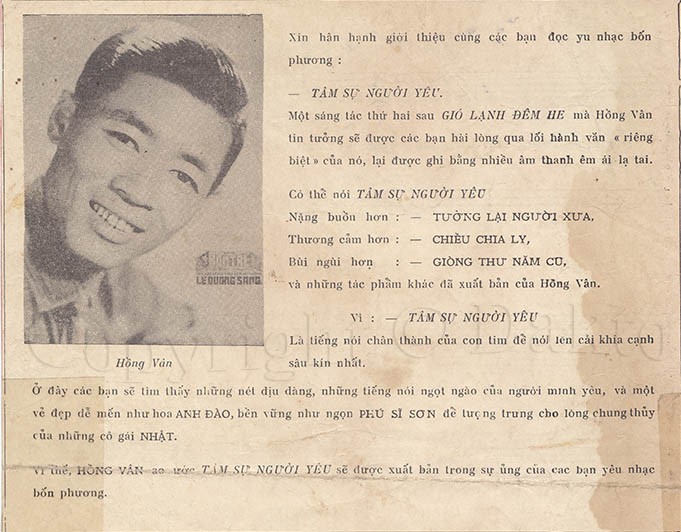 Xin hân hạnh giới thiệu cùng các bạn đọc yu nhạc bốn
phương :
— TÂM SỰ NGƯỜI YÊU.
Một sáng tác thứ hai sau GIÓ LẠNH ĐÊM HE mà Hồng Vân
tin tưởng sẽ được các bạn hài lòng qua lối hành văn « riêng
biệt » của nó, lại được ghi bằng nhiều âm thanh êm ái lạ tai.
Có thể nói TÂM SỰ NGƯỜI YÊU
Nặng buồn hơn : — TƯỞNG LẠI NGƯỜI XƯA,
Thương cảm hơn : — CHIỀU CHIA LY,
Bùi ngùi hơn : — GIÒNG THƯ NĂM CŨ,
và những tác phẩm khác đã xuất bản của Hồng Vân.
Vì : — TÂM SỰ NGƯỜI YÊU
Là tiếng nói chân thành của con tim để nói lên cái khía cạnh
sâu kín nhất.
LEDUONG SANG
Hồng Vân
Ở đây các bạn sẽ tìm thấy những nét dịu dàng, những tiếng nói ngọt ngào của người mình yêu, và một
vẻ đẹp dễ mến như hoa ANH ĐÀO, bền vững như ngọn PHÚ SĨ SƠN để tượng trưng cho lòng chung thủy
của những cô gái NHẬT.
Vì thế, HỒNG VÂN ao ước TÂM SỰ NGƯỜI YÊU sẽ được xuất bản trong sự ủng của cac bạn yêu nhạc
bốn phương.
Copyright © Dalito